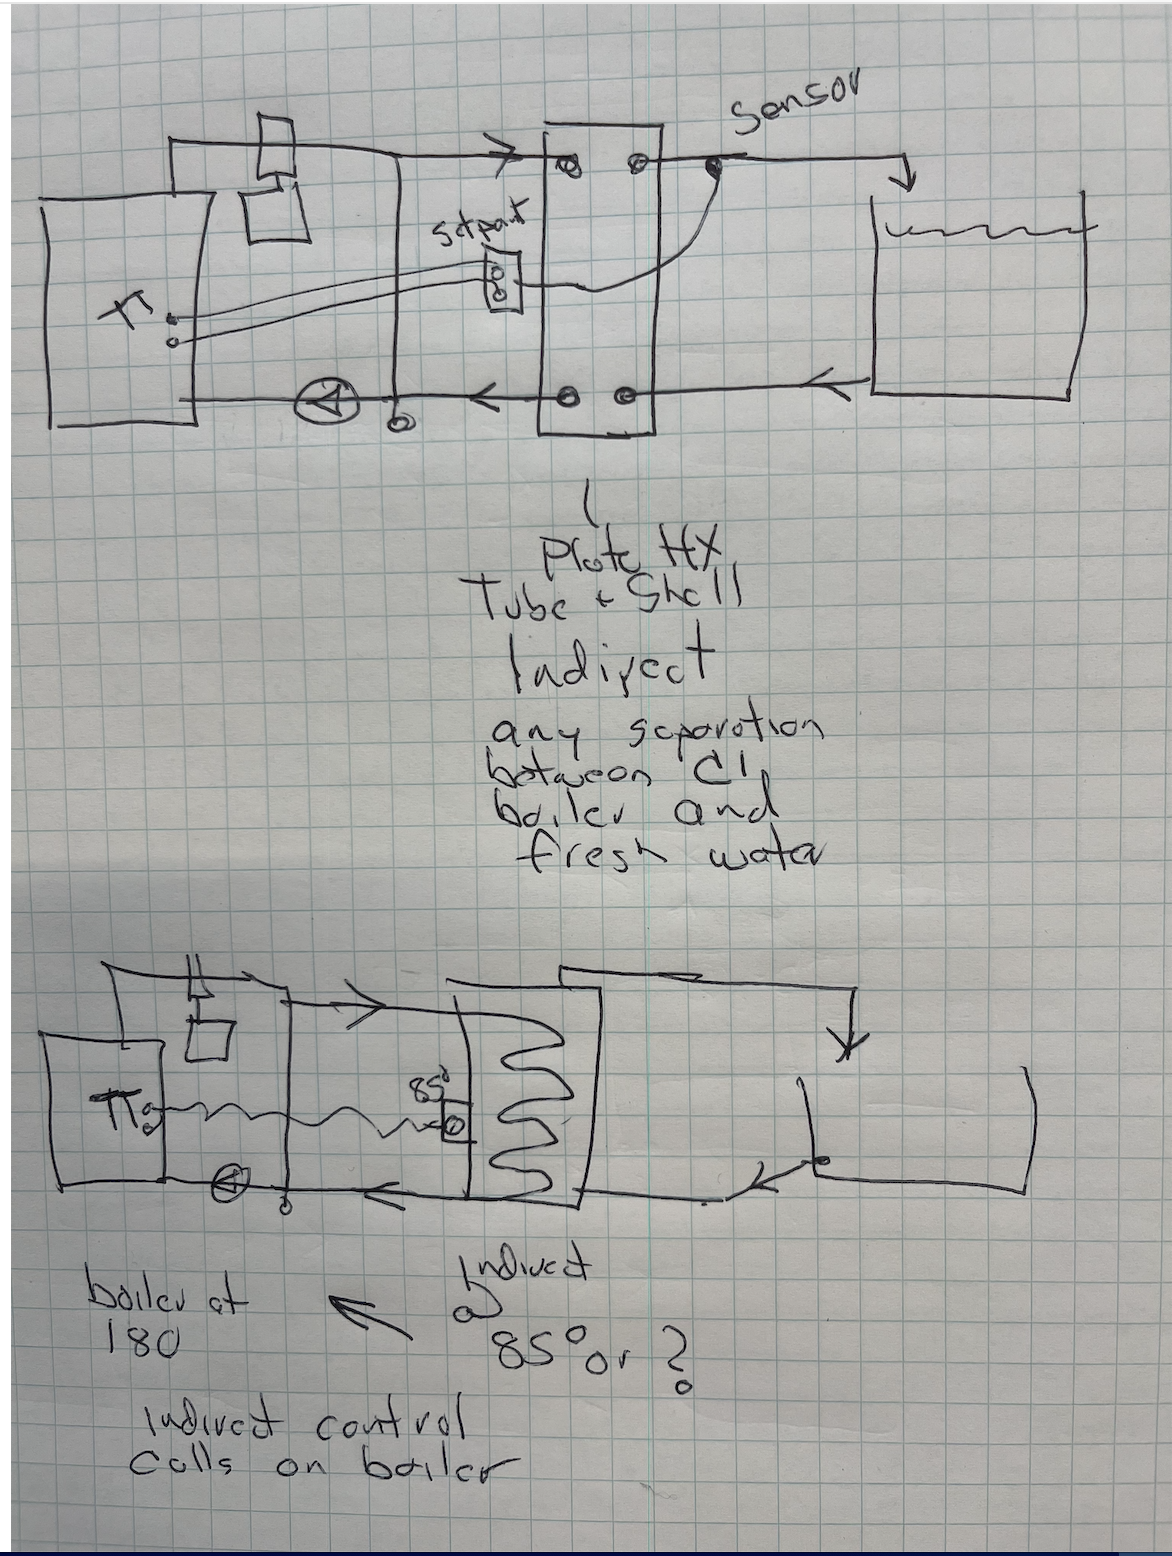 Sensor
Setpoint
TT
Plate HX
Tube + Shell
Indirect
any separation
between CI
boiler and
fresh water
85°
TT
Indirect
@
85° or ?
boiler at
180
Indirect control
calls on boiler